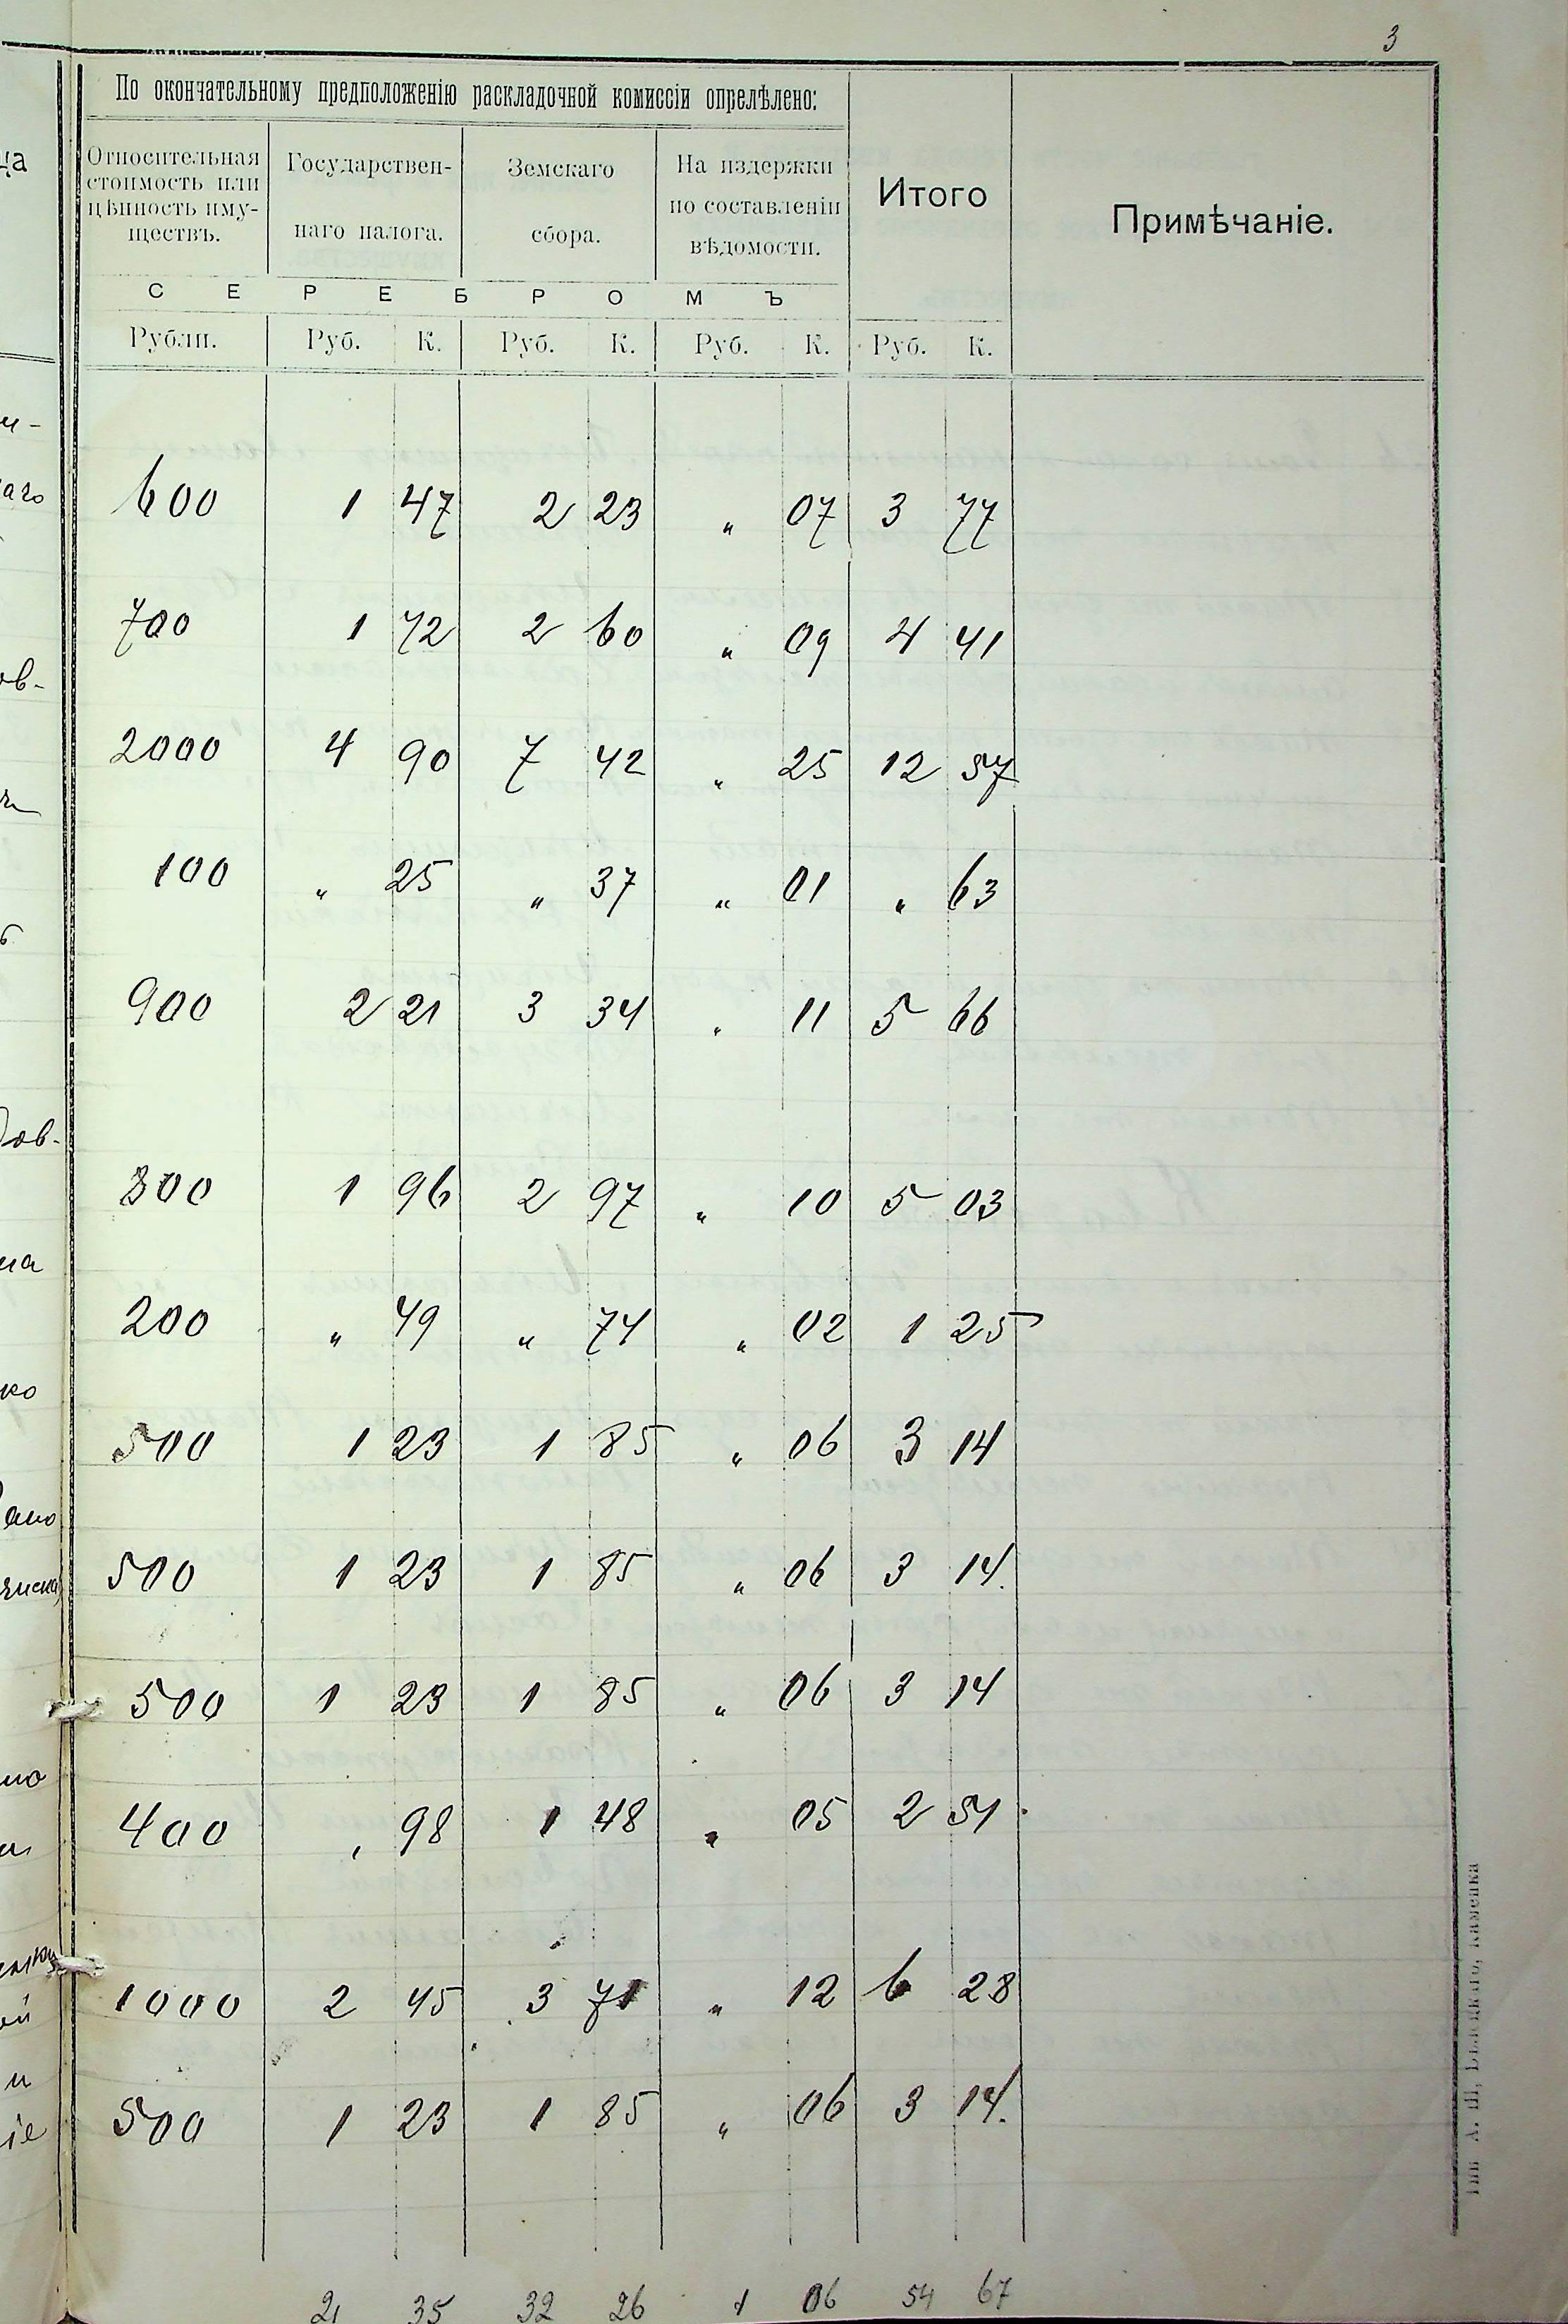 3
По окончательному предположенію раскладочной комиссіи опрелѣлено:
Относительная стоимость или цѣнность иму-ществъ.
Государствен-наго налога.
Земскаго сбора.
На издержки по составленіи вѣдомости.
Итого
Примѣчаніе.
С Е Р Е Б Р О М Ъ
Рубли. Руб. К. Руб. К. Руб. К. Руб. К.
600 1 47 2 23 „ 07 3 77
700 1 72 2 60 „ 09 4 41
2000 4 90 7 42 „ 25 12 57
100 „ 25 „ 37 „ 01 „ 63
900 2 21 3 34 „ 11 5 66
800 1 96 2 97 „ 10 5 03
200 „ 49 „ 74 „ 02 1 25
500 1 23 1 85 „ 06 3 14
500 1 23 1 85 „ 06 3 14.
500 1 23 1 85 „ 06 3 14
400 „ 98 1 48 „ 05 2 51
1000 2 45 3 71 „ 12 6 28
500 1 23 1 85 „ 06 3 14.
21 35 32 26 1 06 54 67